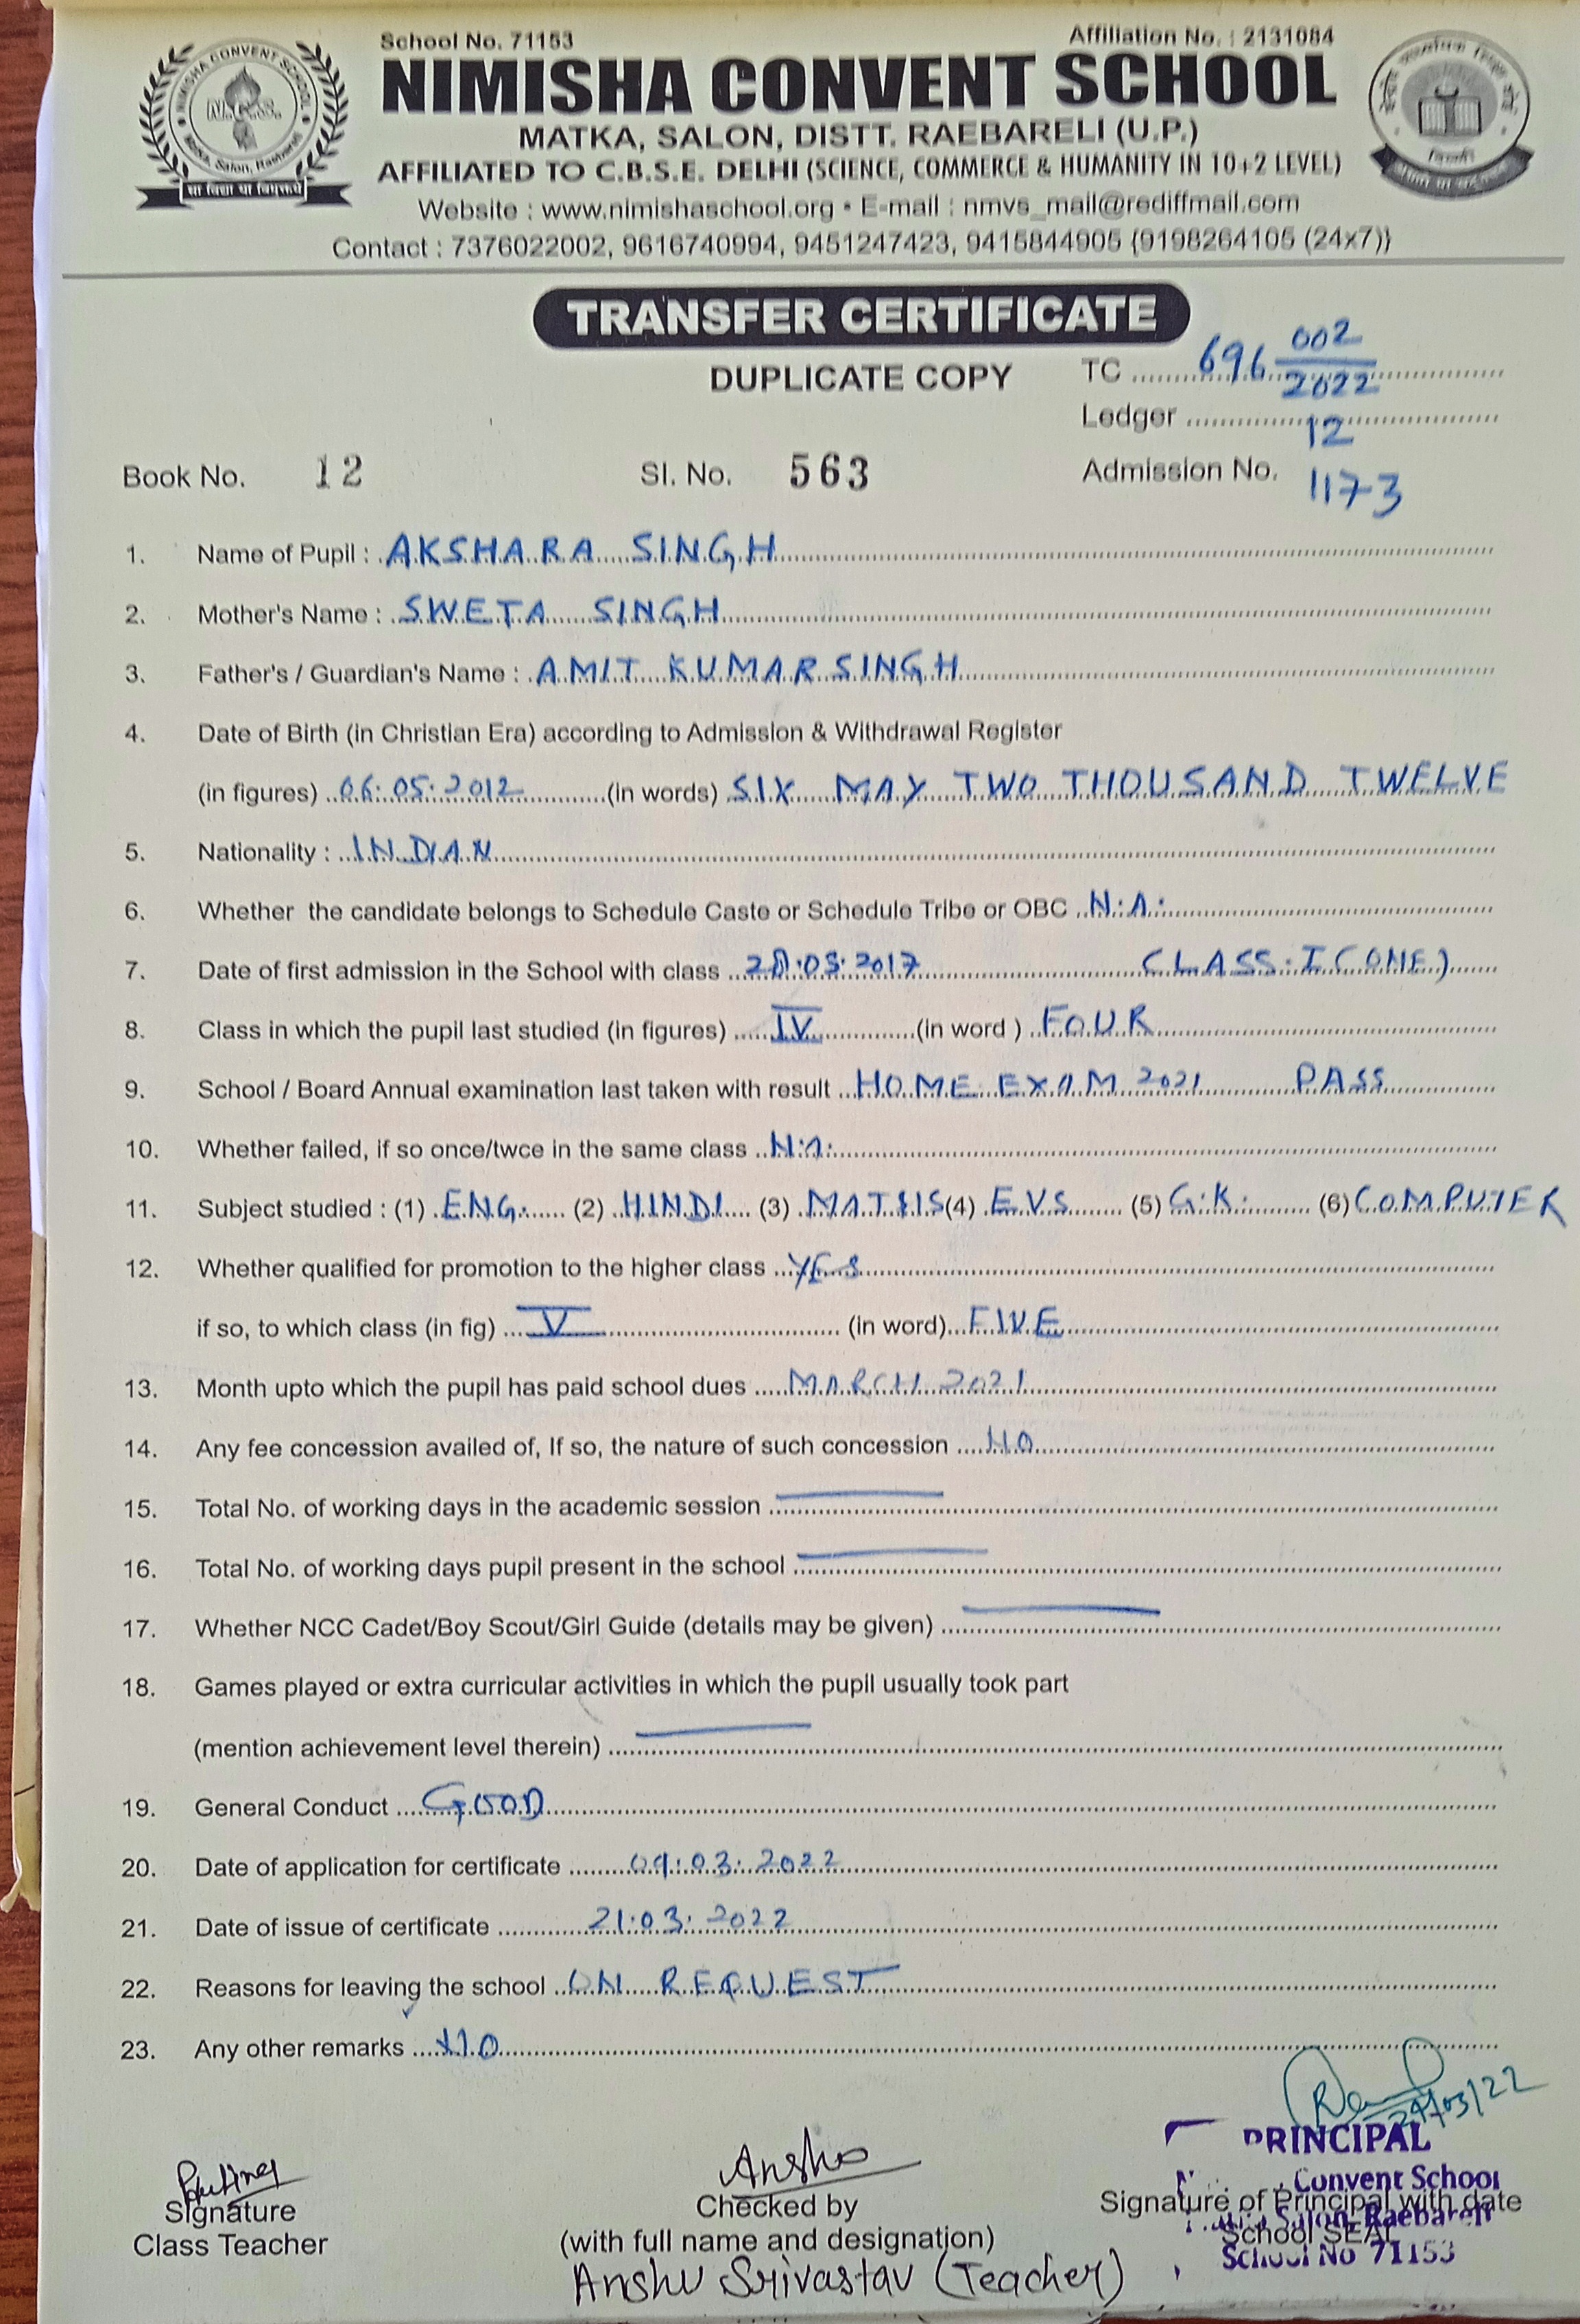 School No. 71153 Affiliation No. : 2131084
NIMISHA CONVENT SCHOOL
MATKA, SALON, DISTT. RAEBARELI (U.P.)
AFFILIATED TO C.B.S.E. DELHI (SCIENCE, COMMERCE & HUMANITY IN 10+2 LEVEL)
Website : www.nimishaschool.org • E-mail : nmvs_mail@rediffmail.com
Contact : 7376022002, 9616740994, 9451247423, 9415844905 {9198264105 (24x7)}
NIMISHA CONVENT SCHOOL
N.C.S.
Matka, Salon, Raebareli
सा विद्या या विमुक्तये
TRANSFER CERTIFICATE
DUPLICATE COPY TC 696 002/2022
Ledger 12
Book No. 12 Sl. No. 563 Admission No. 1173
1. Name of Pupil : AKSHARA SINGH
2. Mother's Name : SWETA SINGH
3. Father's / Guardian's Name : AMIT KUMAR SINGH
4. Date of Birth (in Christian Era) according to Admission & Withdrawal Register
(in figures) 06.05.2012 (in words) SIX MAY TWO THOUSAND TWELVE
5. Nationality : INDIAN
6. Whether the candidate belongs to Schedule Caste or Schedule Tribe or OBC N.A.
7. Date of first admission in the School with class CLASS. I (ONE)
8. Class in which the pupil last studied (in figures) IV (in word ) FOUR
9. School / Board Annual examination last taken with result HOME EXAM 2021 PASS
10. Whether failed, if so once/twce in the same class N.A.
11. Subject studied : (1) ENG. (2) HINDI (3) MATHS (4) E.V.S (5) G.K. (6) COMPUTER
12. Whether qualified for promotion to the higher class YES
if so, to which class (in fig) V (in word) FIVE
13. Month upto which the pupil has paid school dues MARCH 2021
14. Any fee concession availed of, If so, the nature of such concession NO
15. Total No. of working days in the academic session
16. Total No. of working days pupil present in the school
17. Whether NCC Cadet/Boy Scout/Girl Guide (details may be given)
18. Games played or extra curricular activities in which the pupil usually took part
(mention achievement level therein)
19. General Conduct GOOD
20. Date of application for certificate 09.03.2022
21. Date of issue of certificate 21.03.2022
22. Reasons for leaving the school ON REQUEST
23. Any other remarks NO
PRINCIPAL
Convent School
Salon, Raebareli
School No 71153
Signature
Class Teacher
Anshu
Checked by
(with full name and designation)
Anshu Srivastav (Teacher)
Signature of Principal with date
School SEAL